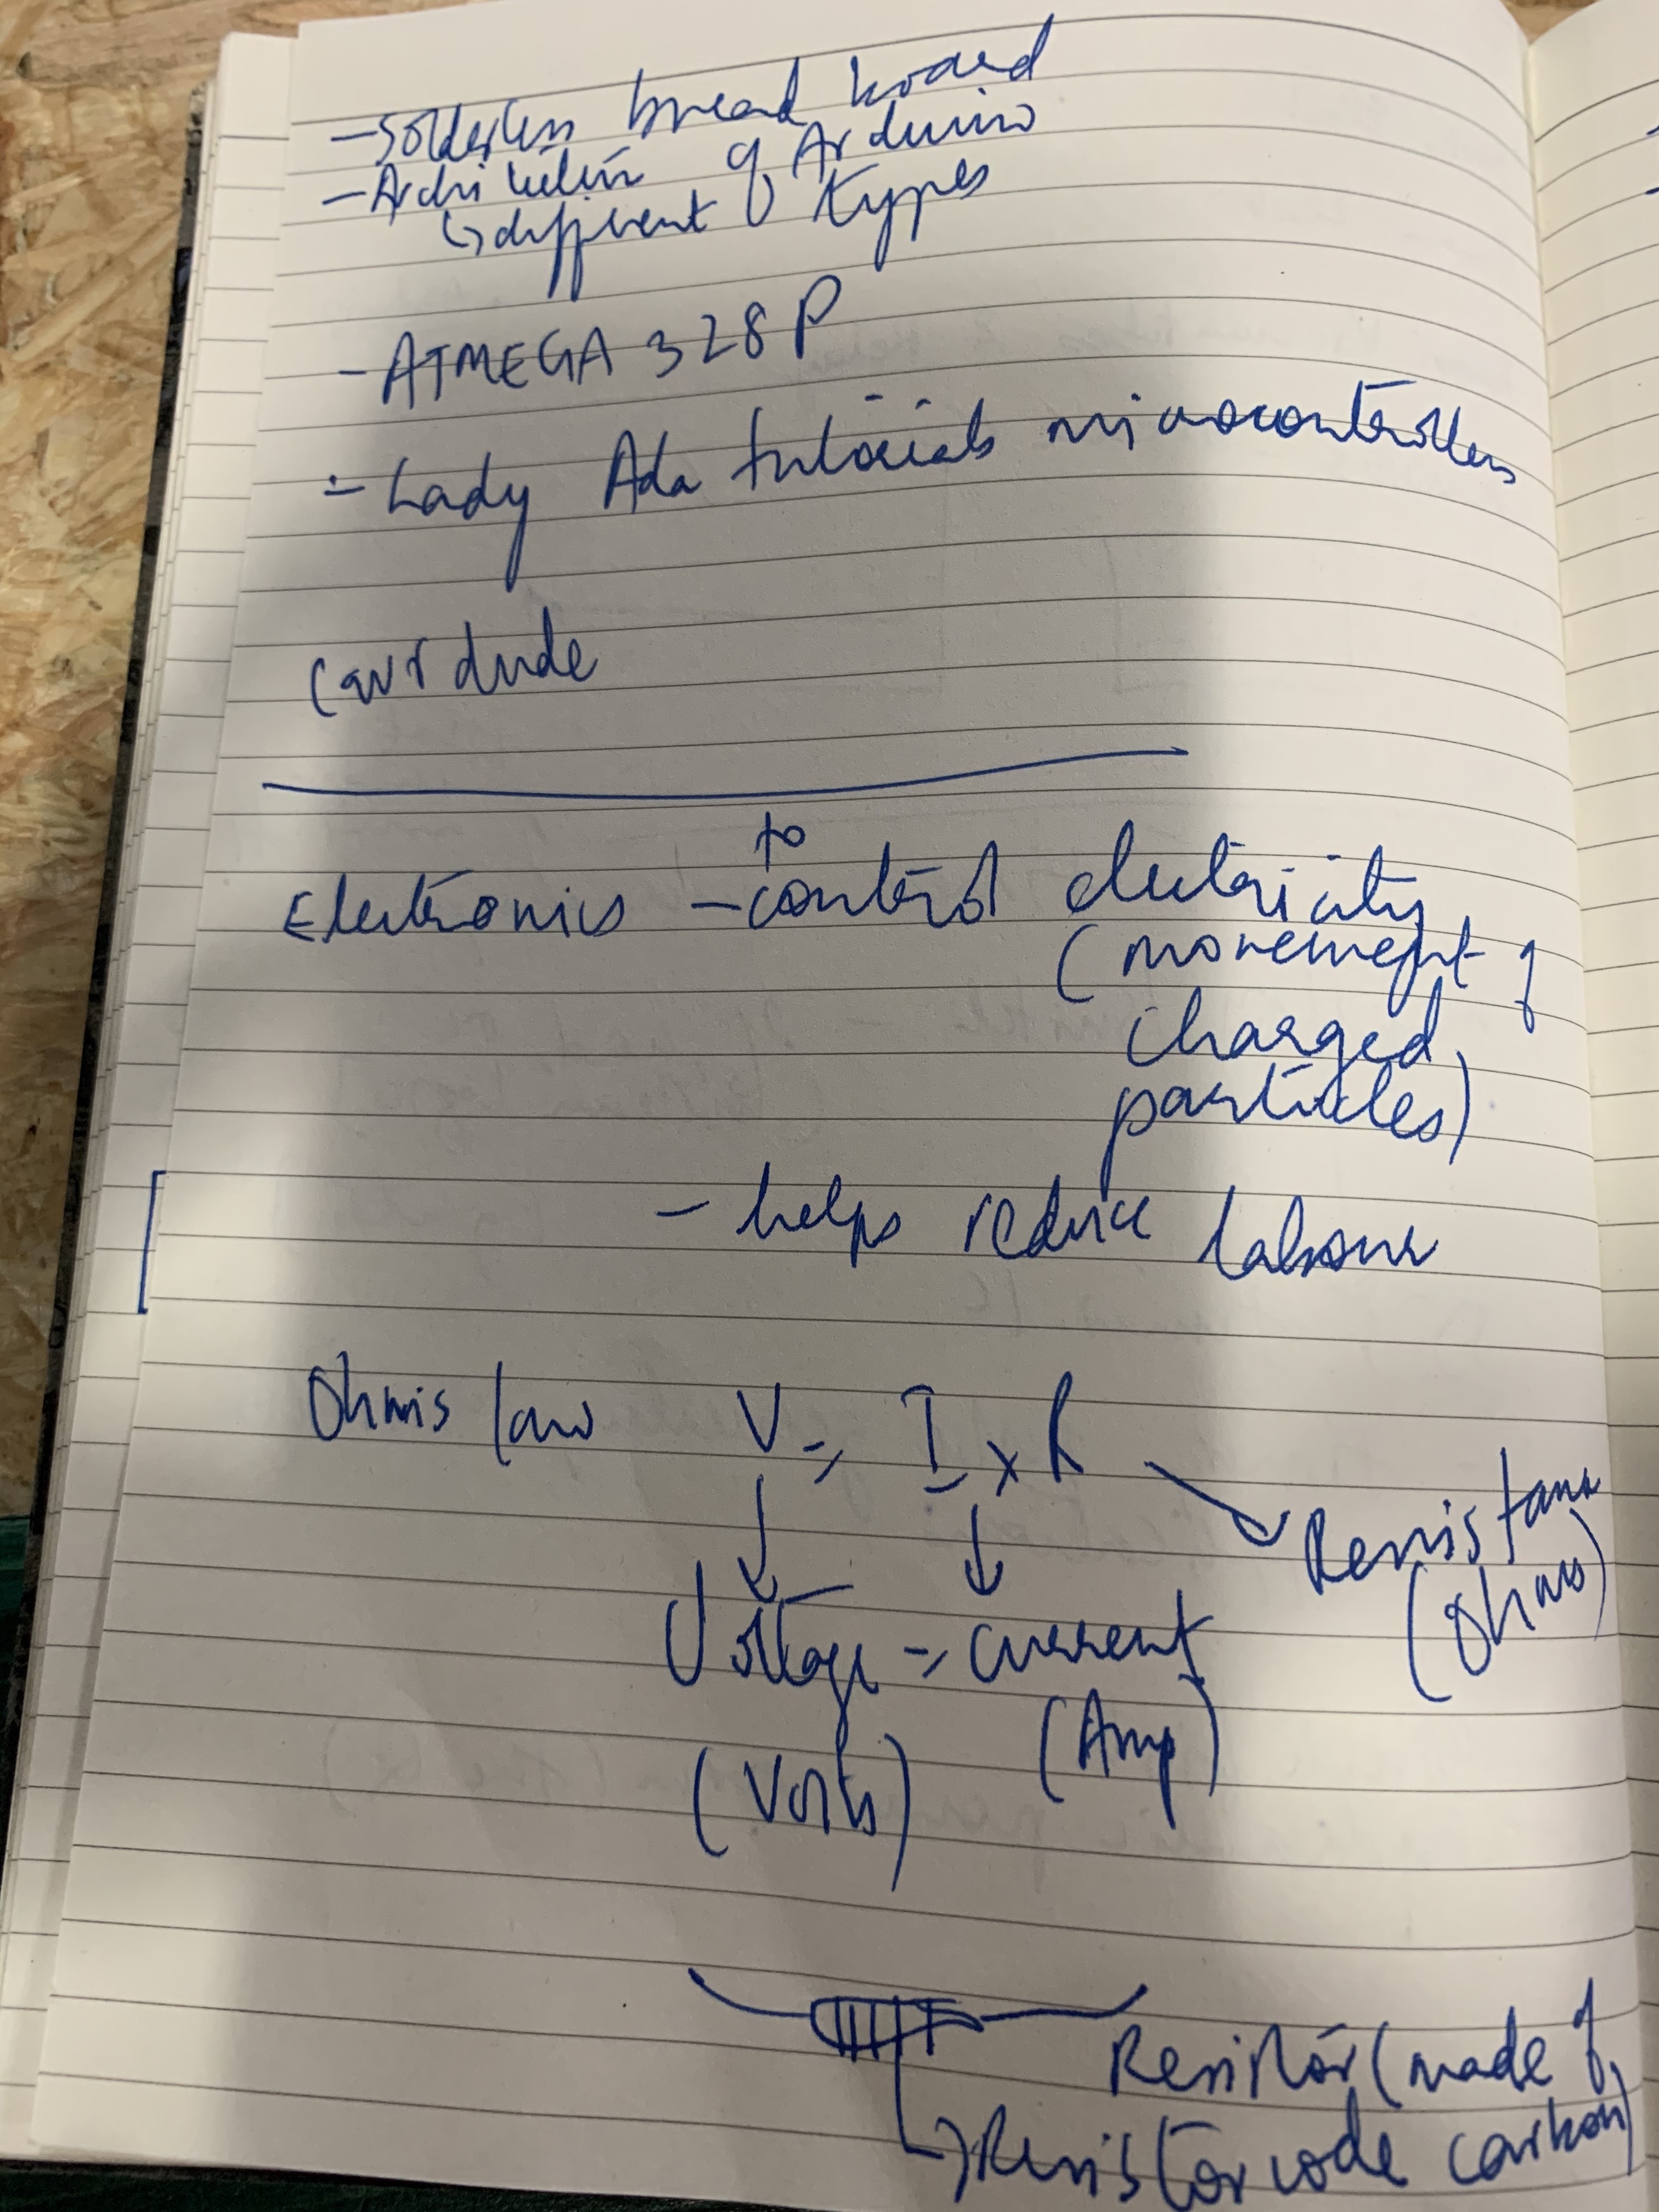 - Solderless bread board
- Architecture of Arduino
↳ different types
- ATMEGA 328P
- Lady Ada tutorials microcontrollers
(avr dude
Electronics - to control electricity
(movement of
charged
particles)
- helps reduce labour
Ohms law V = I x R
Resistance
(Ohms)
Voltage = current
(Amp)
(Volts)
Resistor (made of
carbon)
↳ Resistor code